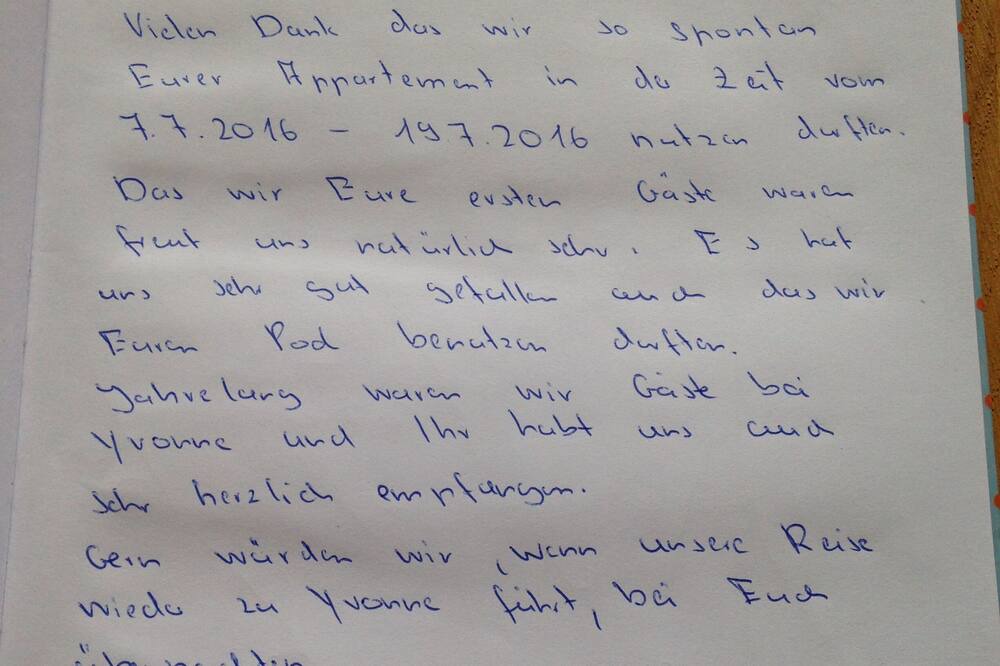 Vielen Dank das wir so spontan
Eurer Appartement in der Zeit vom
7.7.2016 - 19.7.2016 nutzen durften.
Das wir Eure ersten Gäste waren
freut uns natürlich sehr. Es hat
uns sehr gut gefallen auch das wir
Euren Pool benutzen durften.
Jahrelang waren wir Gäste bei
Yvonne und Ihr habt uns auch
sehr herzlich empfangen.
Gern würden wir, wenn unsere Reise
wieder zu Yvonne führt, bei Euch
übernachten